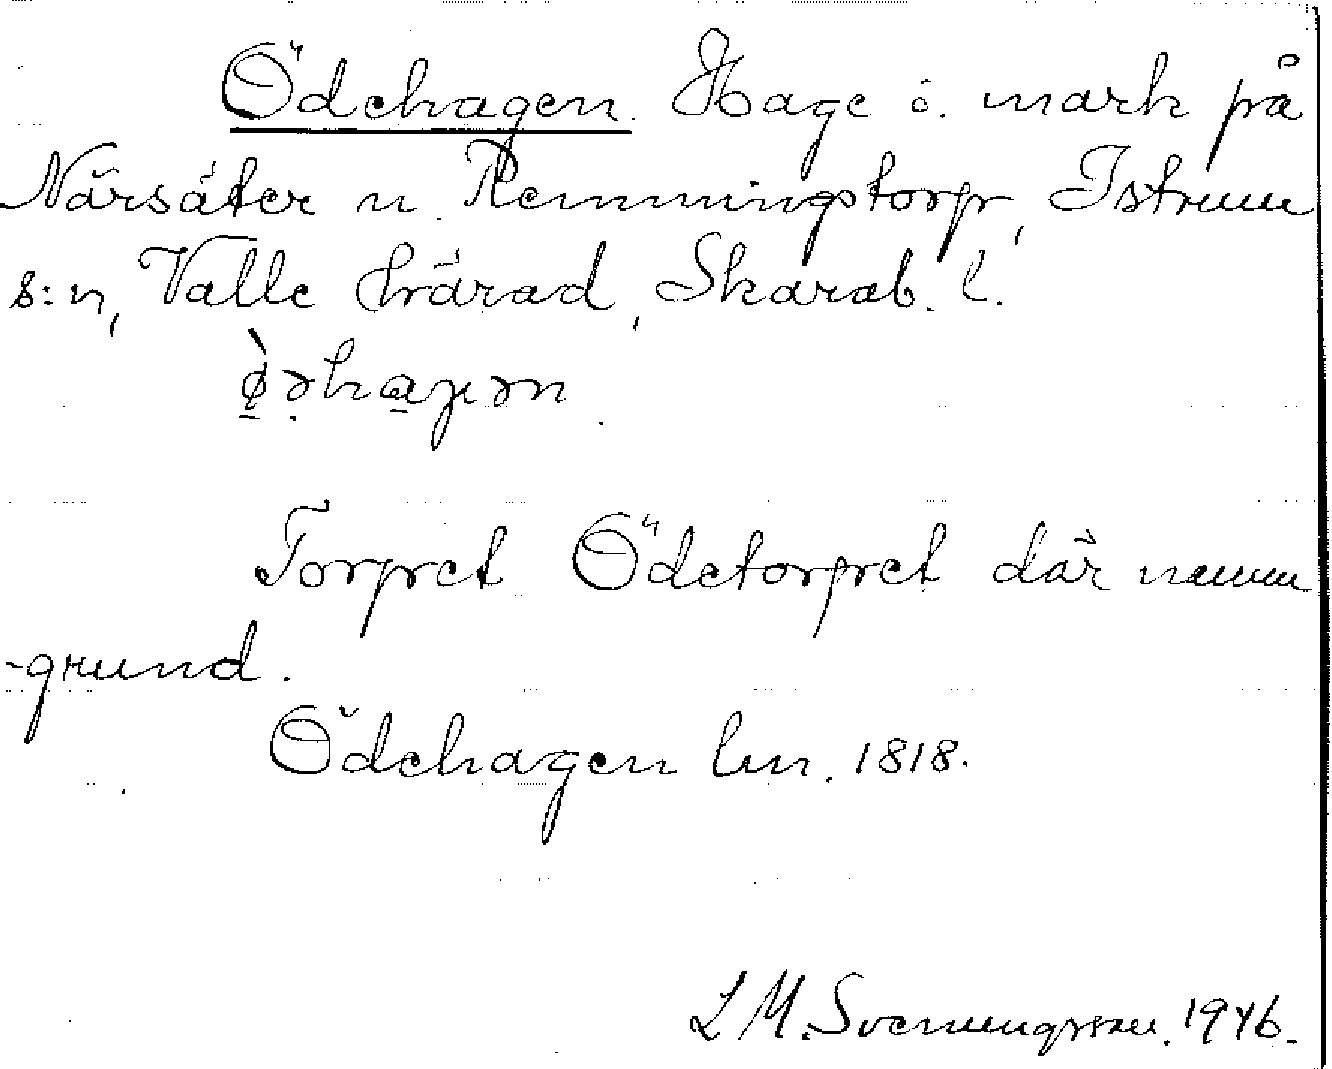 Ödehagen. Hage o. mark på
Närsäter u. Remmingstorp, Istrum
s:n, Valle härad, Skarab. l.
Torpret Ödetorpret där namn
-grund.
Ödehagen lm. 1818.
L M. Svenungsson. 1946.